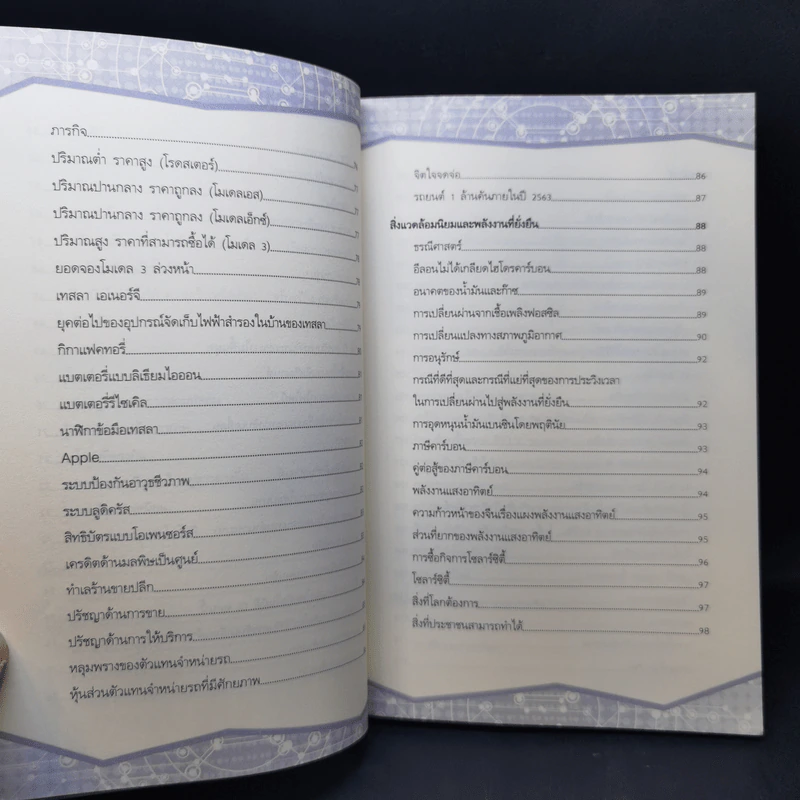 ภารกิจ
ปริมาณต่ำ ราคาสูง (โรดสเตอร์)
ปริมาณปานกลาง ราคาถูกลง (โมเดลเอส)
ปริมาณปานกลาง ราคาถูกลง (โมเดลเอ็กซ์)
ปริมาณสูง ราคาที่สามารถซื้อได้ (โมเดล 3)
ยอดจองโมเดล 3 ล่วงหน้า
เทสลา เอเนอร์จี
ยุคต่อไปของอุปกรณ์จัดเก็บไฟฟ้าสำรองในบ้านของเทสลา
กิกาแฟคทอรี่
แบตเตอรี่แบบลิเธียมไอออน
แบตเตอรี่รีไซเคิล
นาฬิกาข้อมือเทสลา
Apple
ระบบป้องกันอาวุธชีวภาพ
ระบบลูดิครัส
สิทธิบัตรแบบโอเพนซอร์ส
เครดิตด้านมลพิษเป็นศูนย์
ทำเลร้านขายปลีก
ปรัชญาด้านการขาย
ปรัชญาด้านการให้บริการ
หลุมพรางของตัวแทนจำหน่ายรถ
หุ้นส่วนตัวแทนจำหน่ายรถที่มีศักยภาพ
จิตใจจดจ่อ 86
รถยนต์ 1 ล้านคันภายในปี 2563 87
สิ่งแวดล้อมนิยมและพลังงานที่ยั่งยืน 88
ธรณีศาสตร์ 88
อีลอนไม่ได้เกลียดไฮโดรคาร์บอน 88
อนาคตของน้ำมันและก๊าซ 89
การเปลี่ยนผ่านจากเชื้อเพลิงฟอสซิล 89
การเปลี่ยนแปลงทางสภาพภูมิอากาศ 90
การอนุรักษ์ 92
กรณีที่ดีที่สุดและกรณีที่แย่ที่สุดของการประวิงเวลา
ในการเปลี่ยนผ่านไปสู่พลังงานที่ยั่งยืน 92
การอุดหนุนน้ำมันเบนซินโดยพฤตินัย 93
ภาษีคาร์บอน 93
คู่ต่อสู้ของภาษีคาร์บอน 94
พลังงานแสงอาทิตย์ 94
ความก้าวหน้าของจีนเรื่องแผงพลังงานแสงอาทิตย์ 95
ส่วนที่ยากของพลังงานแสงอาทิตย์ 95
การซื้อกิจการโซลาร์ซิตี้ 96
โซลาร์ซิตี้ 97
สิ่งที่โลกต้องการ 97
สิ่งที่ประชาชนสามารถทำได้ 98